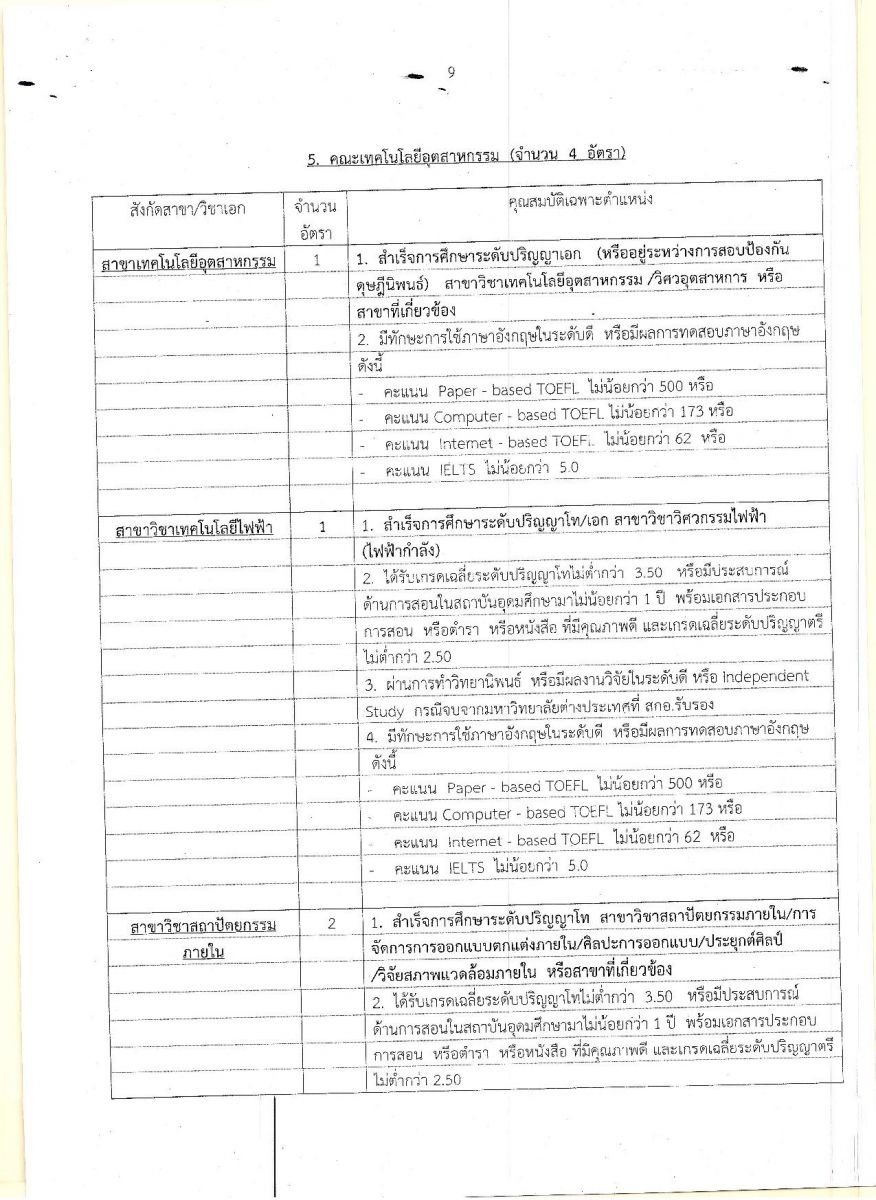 9
5. คณะเทคโนโลยีอุตสาหกรรม (จำนวน 4 อัตรา)
สังกัดสาขา/วิชาเอก
จำนวน
อัตรา
คุณสมบัติเฉพาะตำแหน่ง
สาขาเทคโนโลยีอุตสาหกรรม
1
1. สำเร็จการศึกษาระดับปริญญาเอก (หรืออยู่ระหว่างการสอบป้องกัน
ดุษฎีนิพนธ์) สาขาวิชาเทคโนโลยีอุตสาหกรรม /วิศวอุตสาหการ หรือ
สาขาที่เกี่ยวข้อง
2. มีทักษะการใช้ภาษาอังกฤษในระดับดี หรือมีผลการทดสอบภาษาอังกฤษ
ดังนี้
- คะแนน Paper - based TOEFL ไม่น้อยกว่า 500 หรือ
- คะแนน Computer - based TOEFL ไม่น้อยกว่า 173 หรือ
- คะแนน Internet - based TOEFL ไม่น้อยกว่า 62 หรือ
- คะแนน IELTS ไม่น้อยกว่า 5.0
สาขาวิชาเทคโนโลยีไฟฟ้า
1
1. สำเร็จการศึกษาระดับปริญญาโท/เอก สาขาวิชาวิศวกรรมไฟฟ้า
(ไฟฟ้ากำลัง)
2. ได้รับเกรดเฉลี่ยระดับปริญญาโทไม่ต่ำกว่า 3.50 หรือมีประสบการณ์
ด้านการสอนในสถาบันอุดมศึกษามาไม่น้อยกว่า 1 ปี พร้อมเอกสารประกอบ
การสอน หรือตำรา หรือหนังสือ ที่มีคุณภาพดี และเกรดเฉลี่ยระดับปริญญาตรี
ไม่ต่ำกว่า 2.50
3. ผ่านการทำวิทยานิพนธ์ หรือมีผลงานวิจัยในระดับดี หรือ Independent
Study กรณีจบจากมหาวิทยาลัยต่างประเทศที่ สกอ.รับรอง
4. มีทักษะการใช้ภาษาอังกฤษในระดับดี หรือมีผลการทดสอบภาษาอังกฤษ
ดังนี้
- คะแนน Paper - based TOEFL ไม่น้อยกว่า 500 หรือ
- คะแนน Computer - based TOEFL ไม่น้อยกว่า 173 หรือ
- คะแนน Internet - based TOEFL ไม่น้อยกว่า 62 หรือ
- คะแนน IELTS ไม่น้อยกว่า 5.0
สาขาวิชาสถาปัตยกรรม
ภายใน
2
1. สำเร็จการศึกษาระดับปริญญาโท สาขาวิชาสถาปัตยกรรมภายใน/การ
จัดการการออกแบบตกแต่งภายใน/ศิลปะการออกแบบ/ประยุกต์ศิลป์
/วิจัยสภาพแวดล้อมภายใน หรือสาขาที่เกี่ยวข้อง
2. ได้รับเกรดเฉลี่ยระดับปริญญาโทไม่ต่ำกว่า 3.50 หรือมีประสบการณ์
ด้านการสอนในสถาบันอุดมศึกษามาไม่น้อยกว่า 1 ปี พร้อมเอกสารประกอบ
การสอน หรือตำรา หรือหนังสือ ที่มีคุณภาพดี และเกรดเฉลี่ยระดับปริญญาตรี
ไม่ต่ำกว่า 2.50